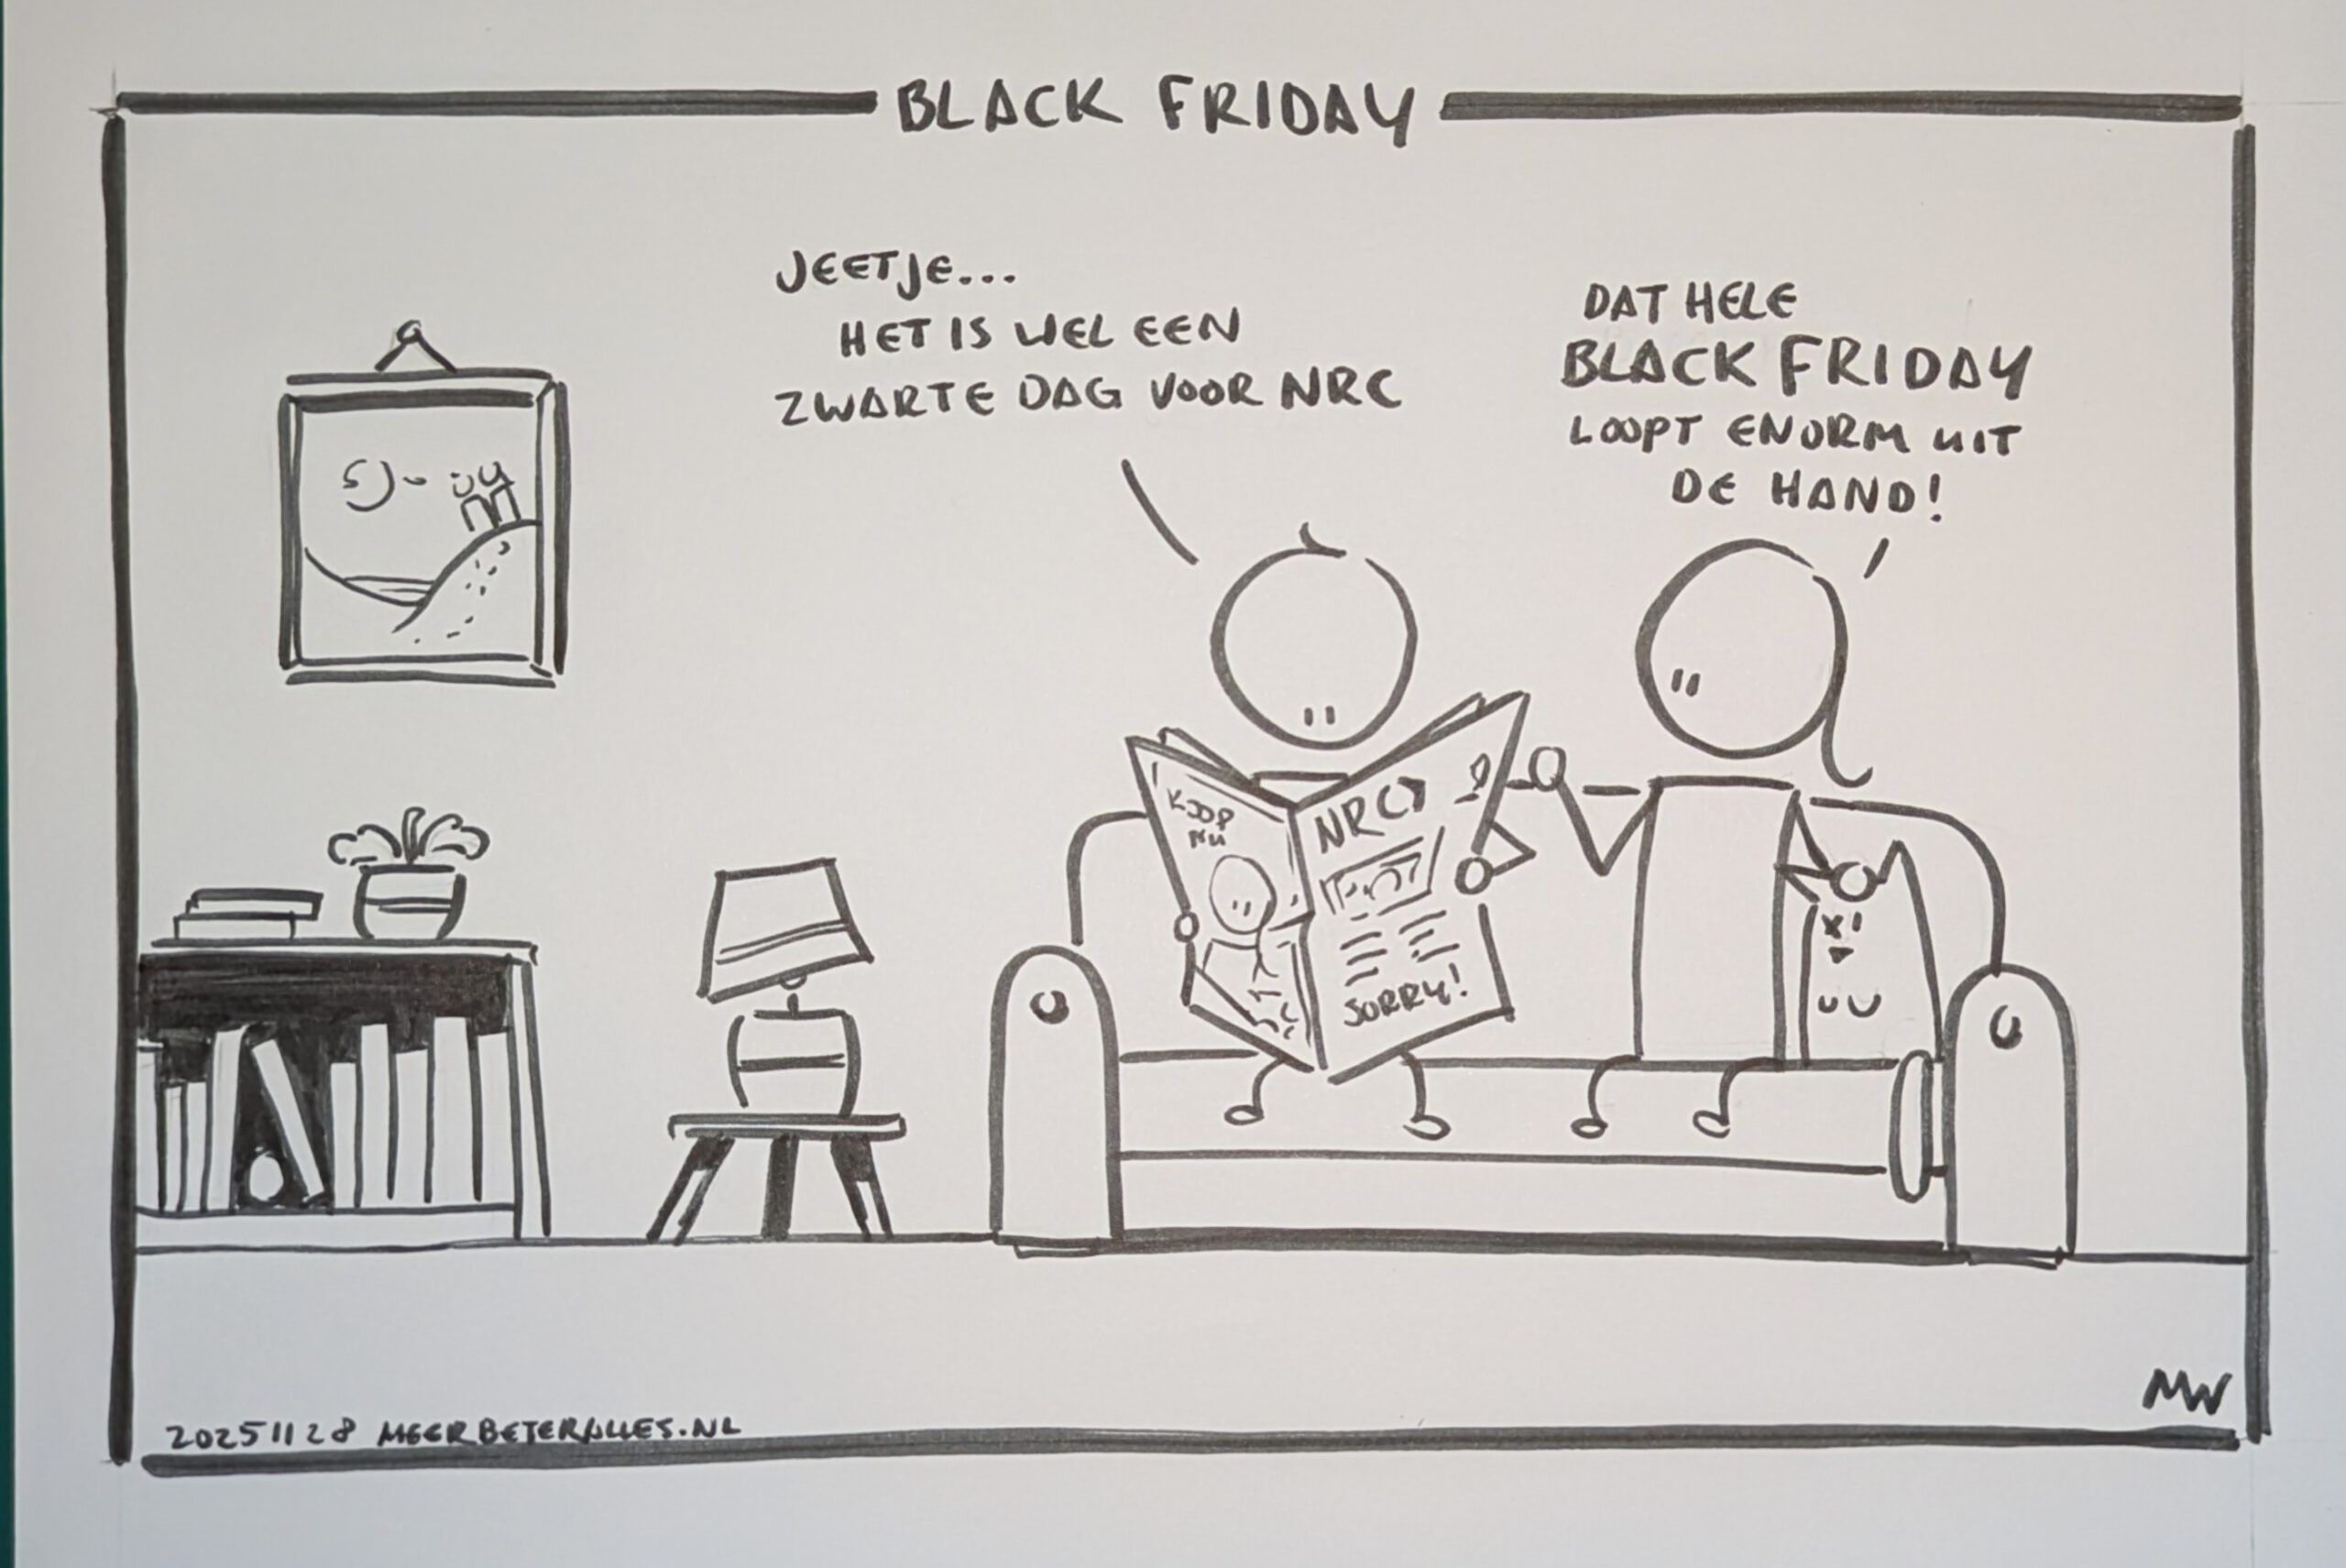 BLACK FRIDAY
JEETJE...
HET IS WEL EEN
ZWARTE DAG VOOR NRC
DAT HELE
BLACK FRIDAY
LOOPT ENORM UIT
DE HAND!
KOOP
NU
NRC>
SORRY!
20251128 MEERBETERALLES.NL
MW